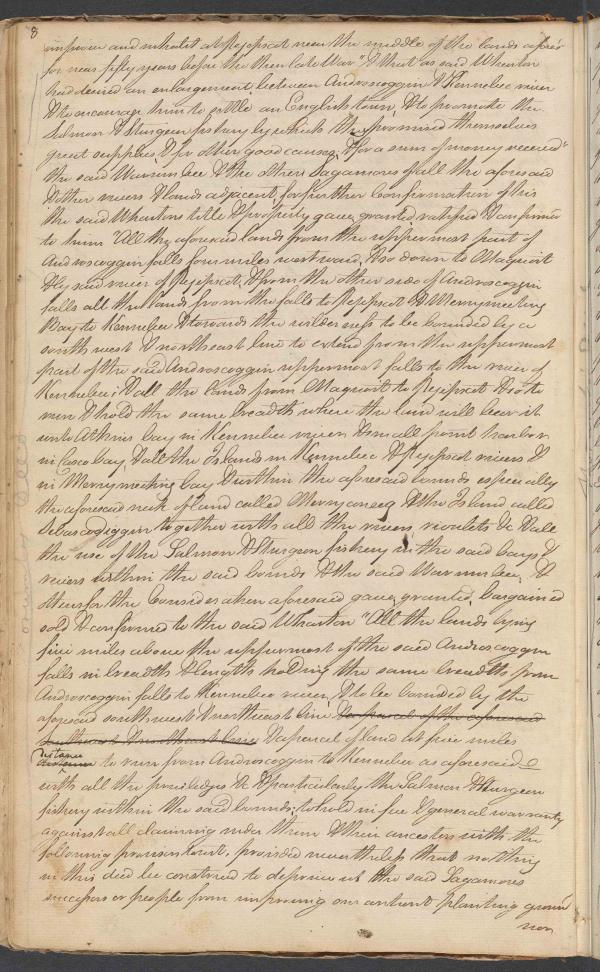 8
improve and inhabit at Pejepscot near the middle of the lands afores'd
for near fifty years before the then late War" & that as said Wharton
had desired an enlargement between Androscoggin & Kennebec river
& to encourage him to settle an English town, & to promote the
Salmon & Sturgeon fishery by which they promised themselves
great supplies & for other good causes; & for a sum of money received"
the said Warumbee & the other Sagamores of all the aforesaid
& other rivers & lands adjacent, for further confirmation of his
the said Whartons title & property gave, granted ratified & confirmed
to him "All the aforesaid lands from the uppermost part of
Androscoggin falls four miles westward, & so down to Maquoit
& by said river of Pejepscot, & from the other side of Androscoggin
falls all the lands from the falls to Pejepscot & Merrymeeting
Bay to Kennebec & towards the wilderness to be bounded by a
southwest & northeast line to extend from the uppermost
part of the said Androscoggin uppermost falls to the river of
Kennebec; & all the lands from Maquoit to Pejepscot & so to
run & hold the same breadth where the land will bear it
unto Atkins bay in Kennebec river & small point harbor
in Casco bay, & all the Islands in Kennebec & Pejepscot rivers &
in Merrymeeting bay & within the aforesaid bounds especially
the aforesaid neck of land called Merryconeeg & the Island called
Sebascodiggin together with all the rivers rivulets &c & all
the use of the Salmon & Sturgeon fishery in the said bays &
rivers within the said bounds & the said Warumbee, &
others for the Consideration aforesaid gave, granted, bargained
sold & confirmed to the said Wharton "All the lands lying
five miles above the uppermost of the said Androscoggin
falls in breadth & length holding the same breadth from
Androscoggin falls to Kennebec river, & to be bounded by the
aforesaid southwest & northeast line & a parcel of the aforesaid
southwest & northeast line & a parcel of land at five miles
distance
distance to run from Androscoggin to Kennebec as aforesaid &
with all the priviledges &c & particularly the Salmon & Sturgeon
fishery within the said bounds; to hold in fee & general warranty
against all claiming under them & their ancestors with the
following proviso to wit, provided nevertheless that nothing
in this deed be construed to deprive us the said Sagamores
successors or people from improving our antient planting grounds
nor